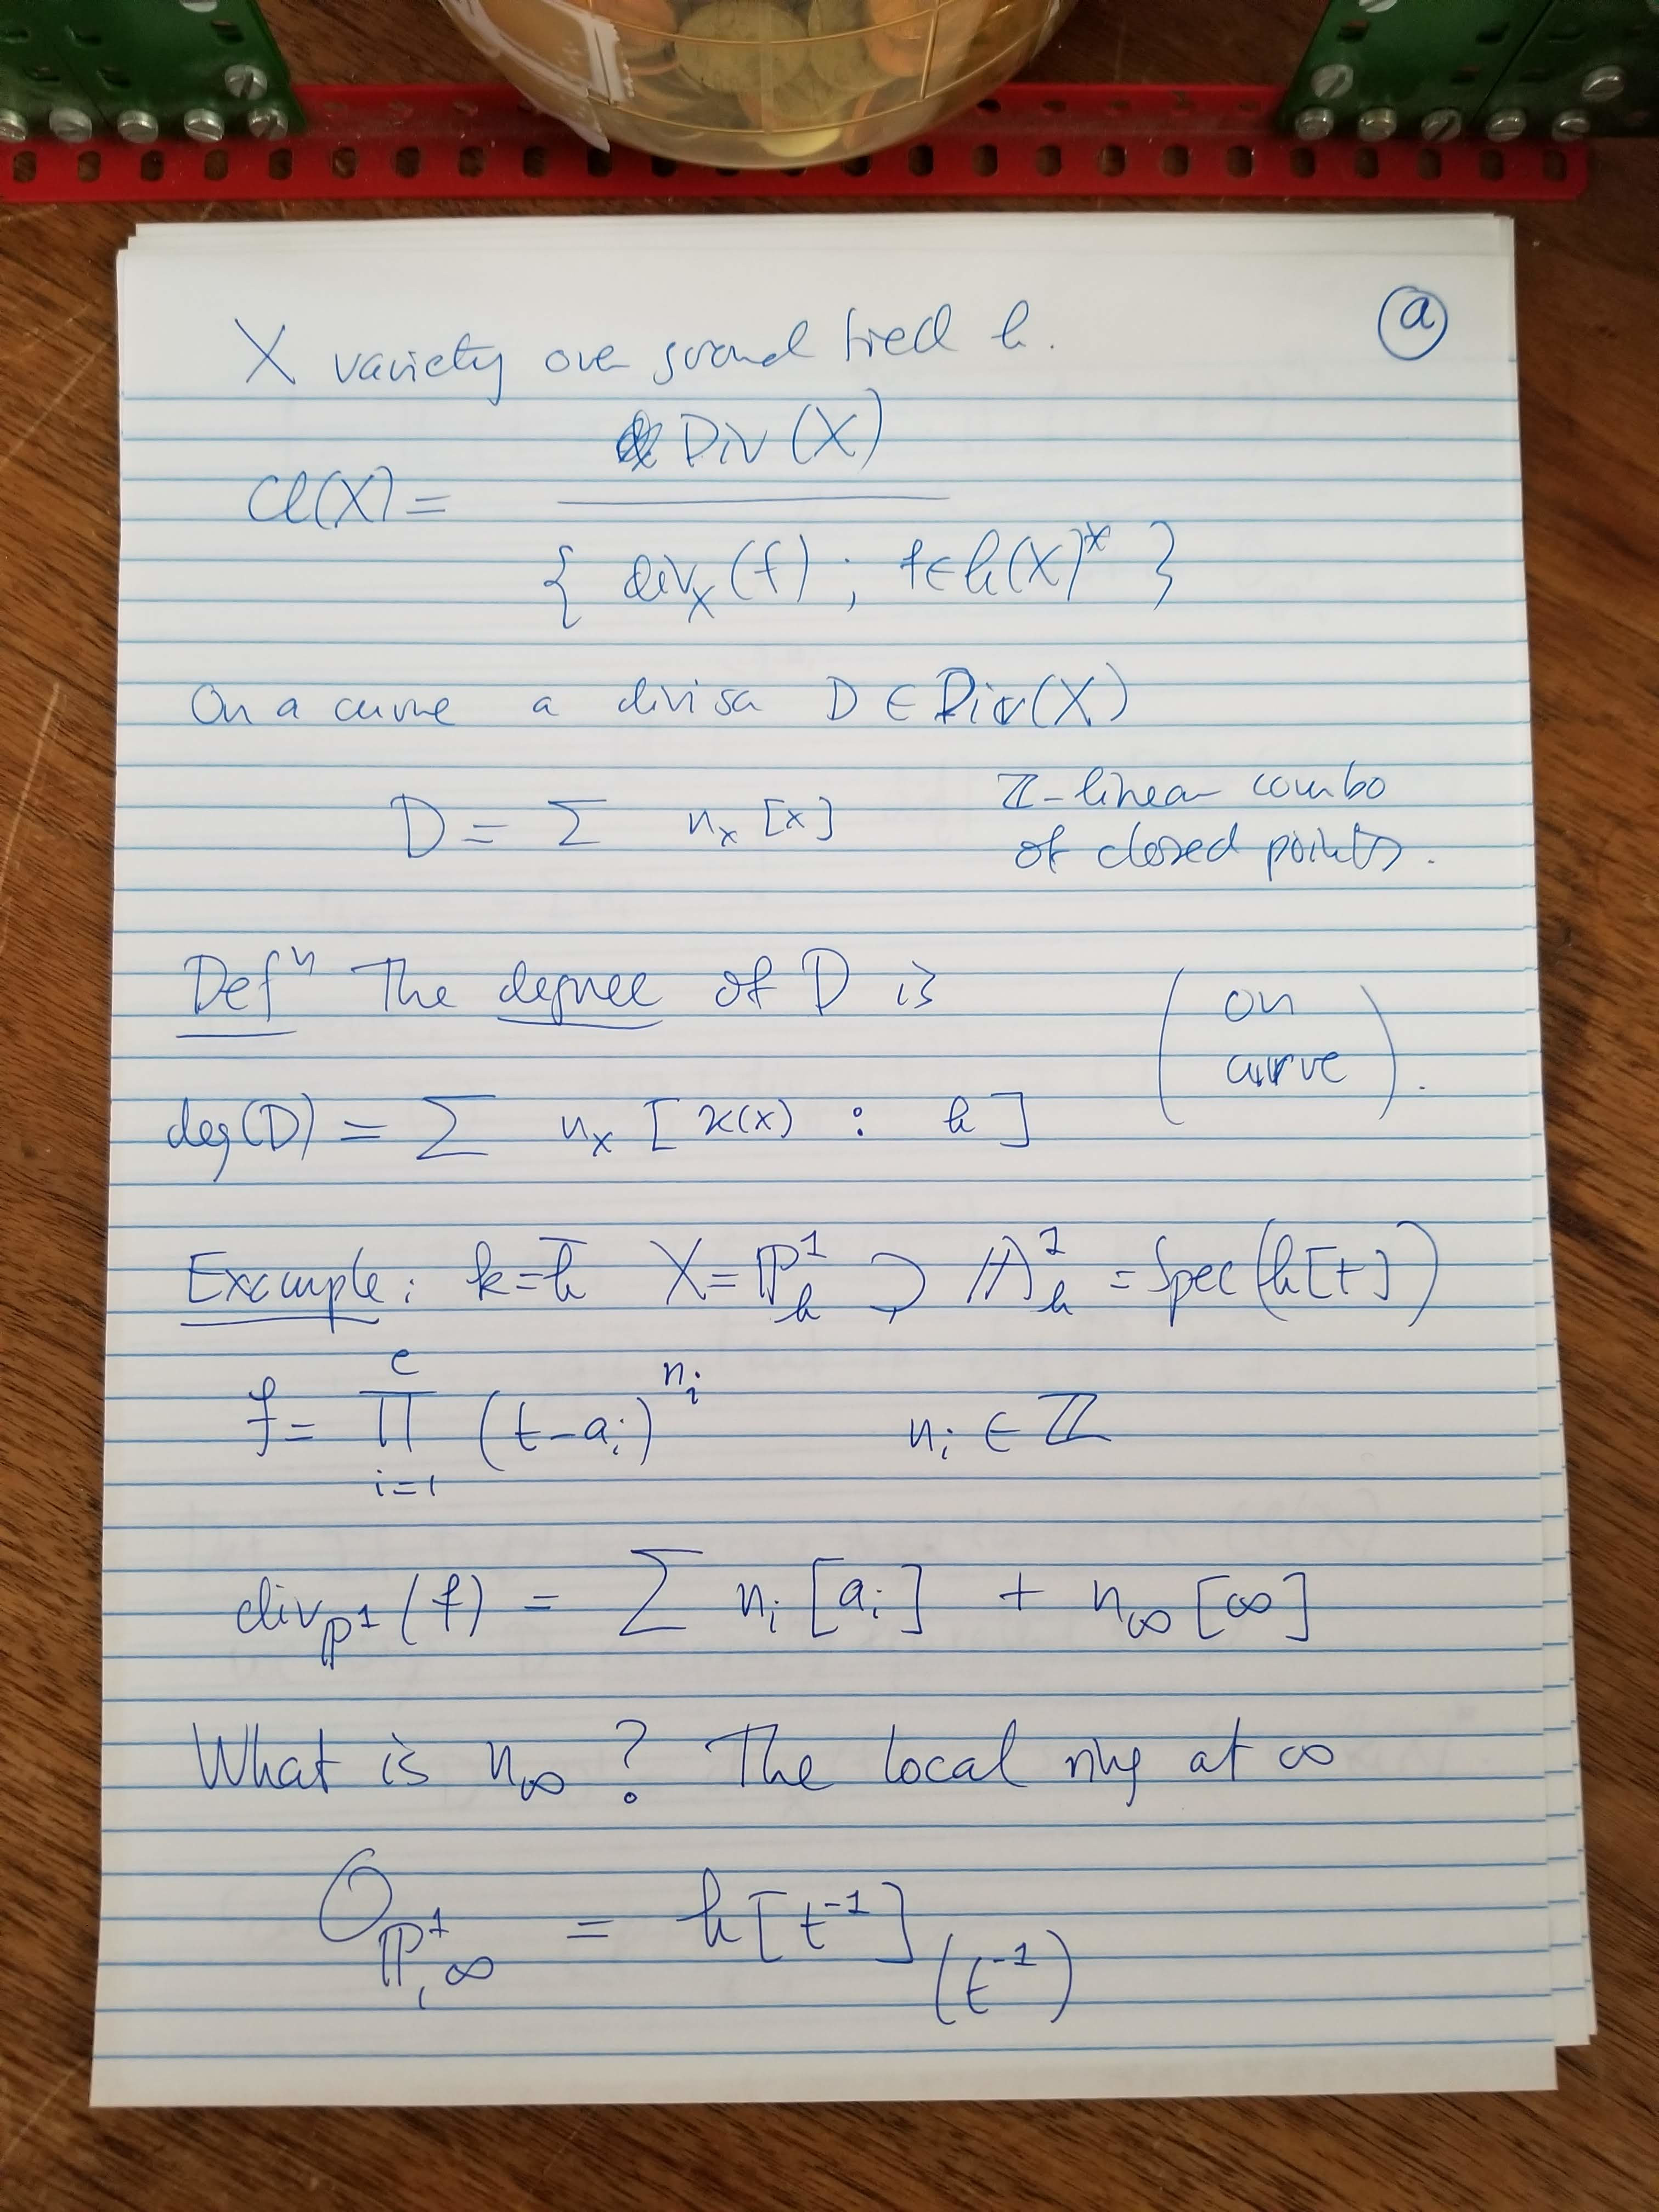 ⓐ
X variety over ground field k.
Cl(X) = Div(X) / { div_X(f) ; f ∈ k(X)^* }
On a curve a divisor D ∈ Div(X)
D = Σ n_x [x] ℤ-linear combo
of closed points.
Defⁿ The degree of D is (on
curve).
deg(D) = Σ n_x [κ(x) : k]
Example: k = k̄ X = ℙ^1_k ⊃ 𝔸^1_k = Spec(k[t])
f = ∏_{i=1}^{e} (t - a_i)^{n_i} n_i ∈ ℤ
div_{ℙ^1}(f) = Σ n_i [a_i] + n_∞ [∞]
What is n_∞ ? The local ring at ∞
O_{ℙ^1,∞} = k[t^{-1}]_{(t^{-1})}